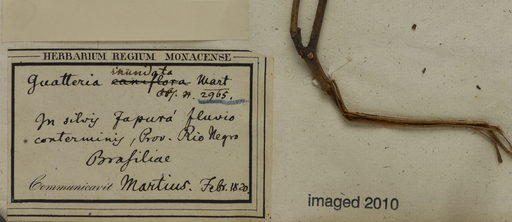 HERBARIUM REGIUM MONACENSE
inundata
Guatteria caniflora Mart
Obs. n. 2965.
In silvis Japurá fluvio
conterminis, Prov. Rio Negro
Brasiliae
Communicavit Martius. Febr. 1820
imaged 2010